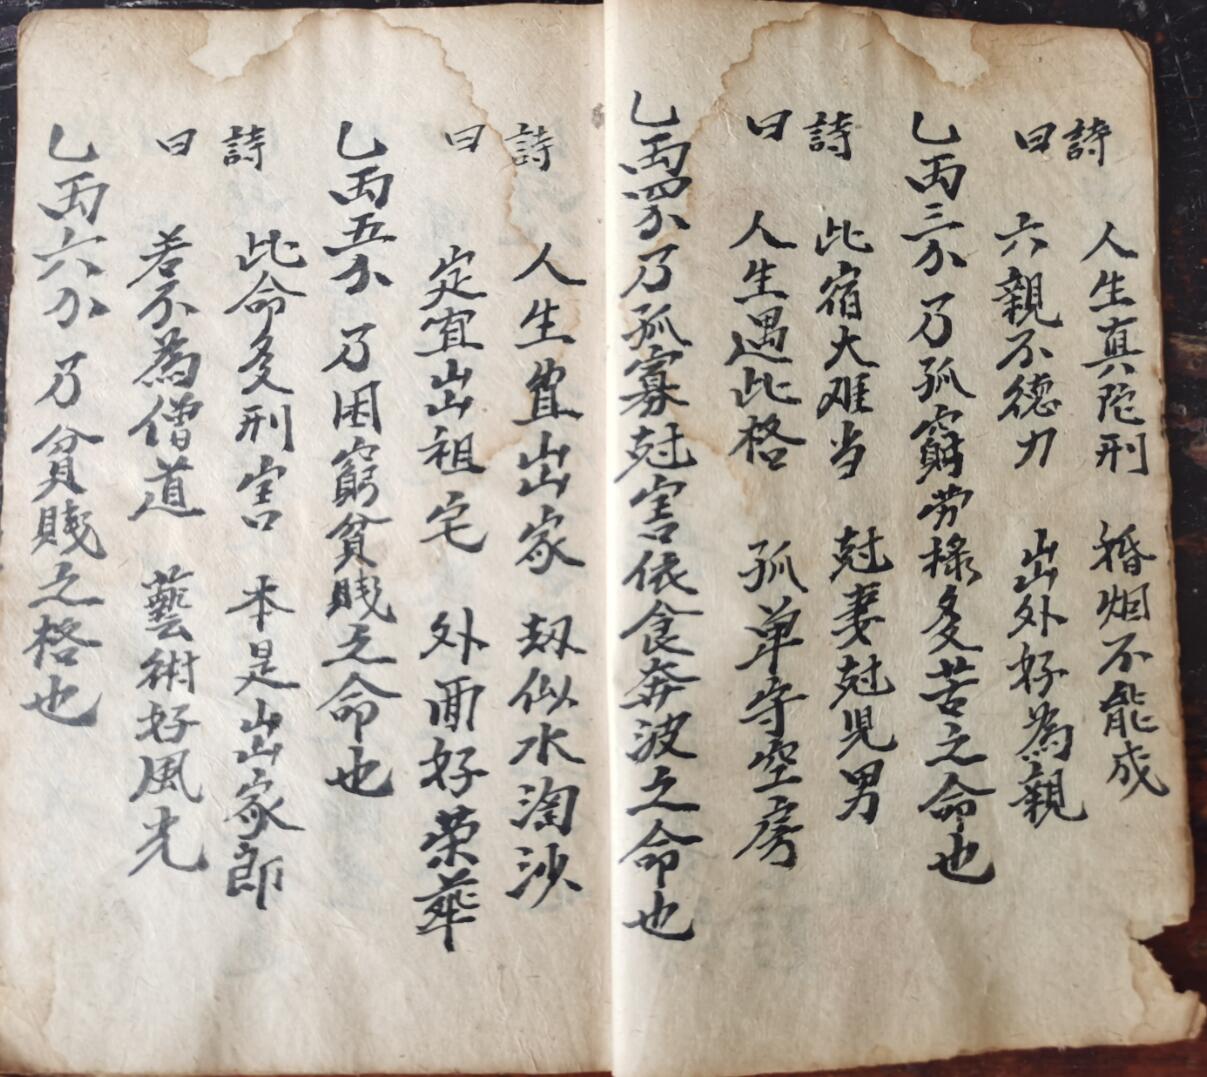 詩曰
人生真陀刑 婚烟不能成
六親不德力 出外好為親
乙丙三分乃孤窮劳祿多苦之命也
詩曰
此宿大难当 尅妻尅児男
人生遇此格 孤单守空房
乙丙四分乃孤寡尅害依食奔波之命也
詩曰
人生宜出家 刼似水淘沙
定宜出祖宅 外面好荣華
乙丙五分乃困窮貧賎之命也
詩曰
此命多刑害 本是出家郎
若不為僧道 藝術好風光
乙丙六分乃貧賎之格也